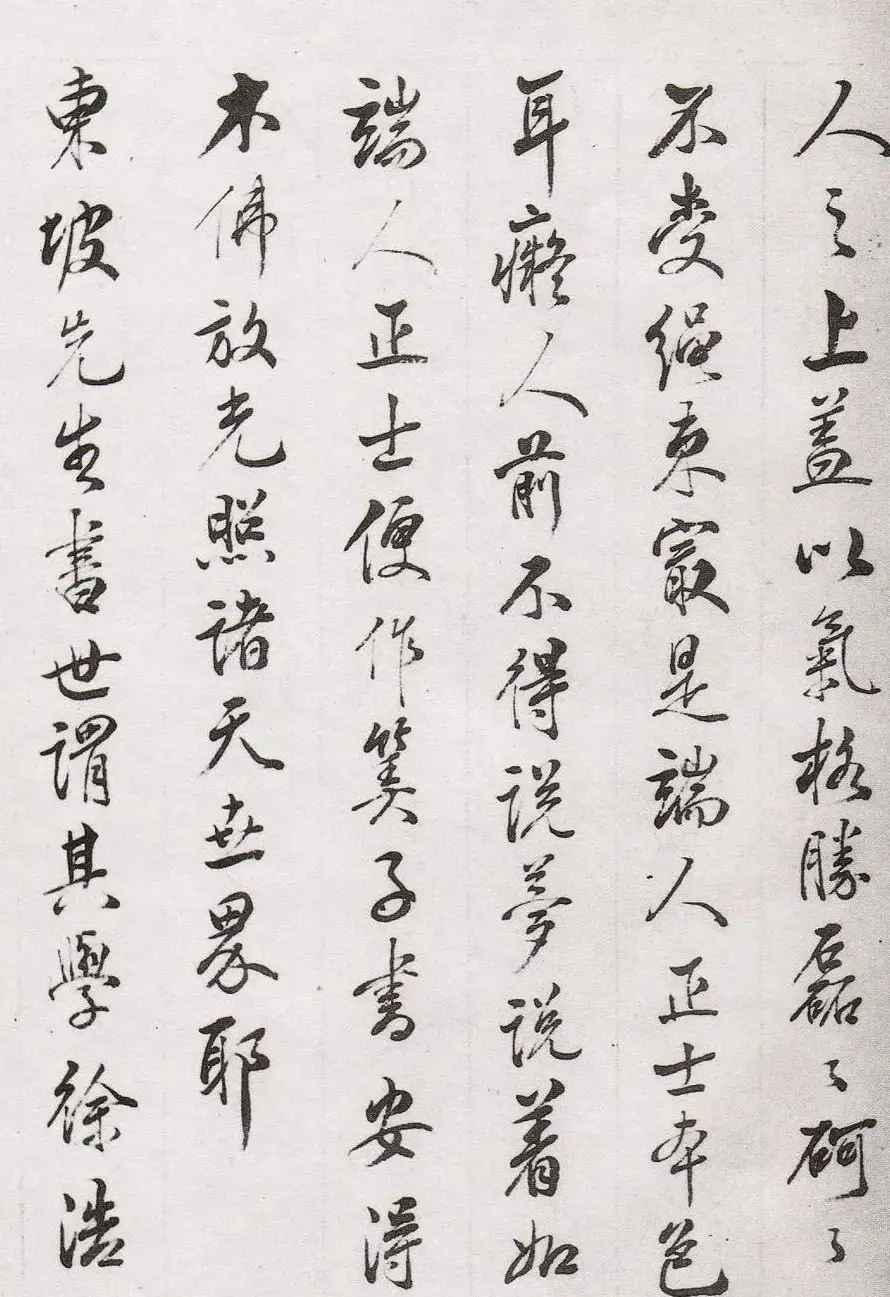 人之上蓋以氣格勝磊々砢々
不受繩束㝡是端人正士本色
耳癡人前不得說夢說着如
端人正士便作筭子書安得
木佛放光照諸天世界耶
東坡先生書世謂其學徐浩